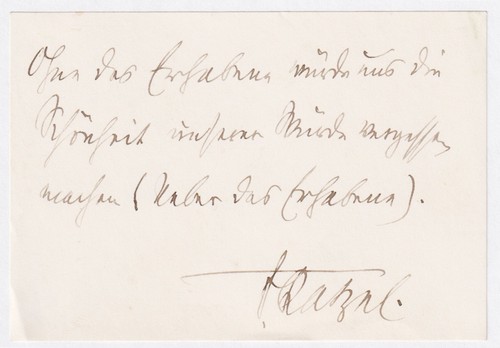 Ohne das Erhabene würde uns die
Schönheit unserer Würde vergessen
machen (Ueber das Erhabene).
F Ratzel.